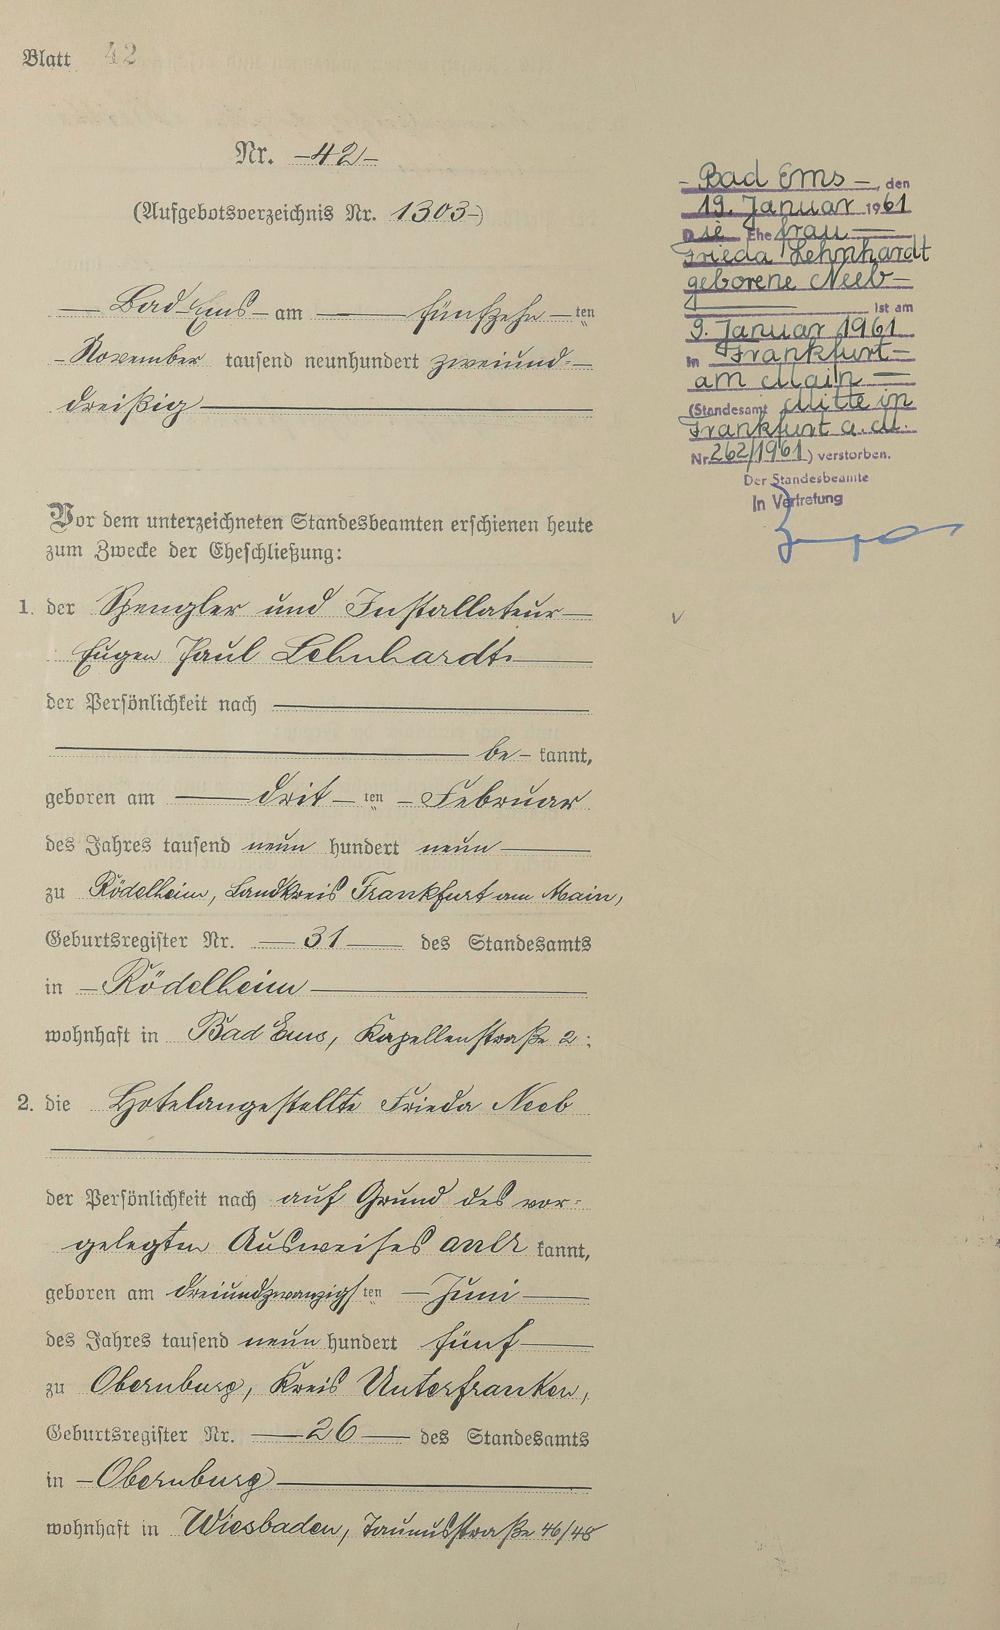 Blatt 42
Nr. —42—
(Aufgebotsverzeichnis Nr. 1303—)
— Bad Ems — am — fünfzehn — ten
— November tausend neunhundert zweiund=
dreißig —
Vor dem unterzeichneten Standesbeamten erschienen heute
zum Zwecke der Eheschließung:
1. der Spengler und Installateur —
Eugen Paul Lehnhardt —
der Persönlichkeit nach —
— be — kannt,
geboren am — drit — ten — Februar
des Jahres tausend neun hundert neun —
zu Rödelheim, Landkreis Frankfurt am Main,
Geburtsregister Nr. — 31 — des Standesamts
in — Rödelheim —
wohnhaft in Bad Ems, Kapellenstraße 2:
2. die Hotelangestellte Frieda Neeb
der Persönlichkeit nach auf Grund des vor=
gelegten Ausweises aner kannt,
geboren am dreiundzwanzigs ten — Juni —
des Jahres tausend neun hundert fünf —
zu Obernburg, Kreis Unterfranken,
Geburtsregister Nr. — 26 — des Standesamts
in — Obernburg —
wohnhaft in Wiesbaden, Taunusstraße 46/48
— Bad Ems —, den
19. Januar 1961
Die Ehefrau —
Frieda Lehnhardt
geborene Neeb —
— ist am
9. Januar 1961
in Frankfurt —
am Main —
(Standesamt Mitte in
Frankfurt a. M.
Nr. 262/1961) verstorben.
Der Standesbeamte
In Vertretung